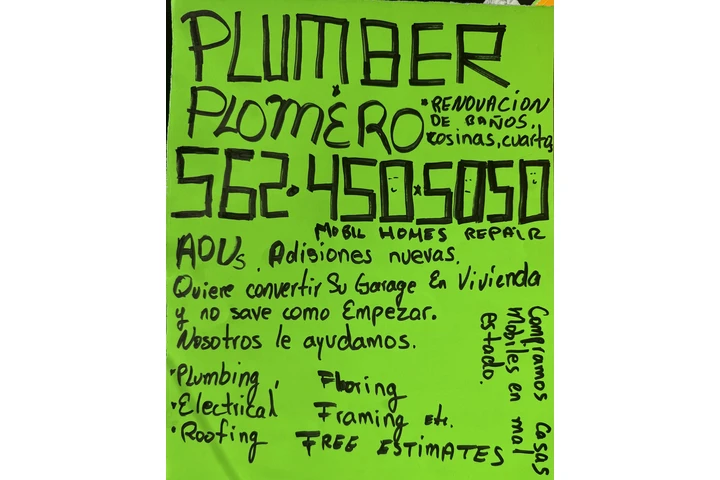 PLUMBER
PLOMERO
• RENOVACION
DE BAÑOS,
cosinas, cuartos
562•450•5050
MOBIL HOMES REPAIR
ADUs. Adisiones nuevas.
Quiere convertir Su Garage En Vivienda
y no save como Empezar.
Nosotros le ayudamos.
•Plumbing,
•Electrical
•Roofing
Floring
Framing etc.
FREE ESTIMATES
Compramos Casas
Mobiles en mal
estado.